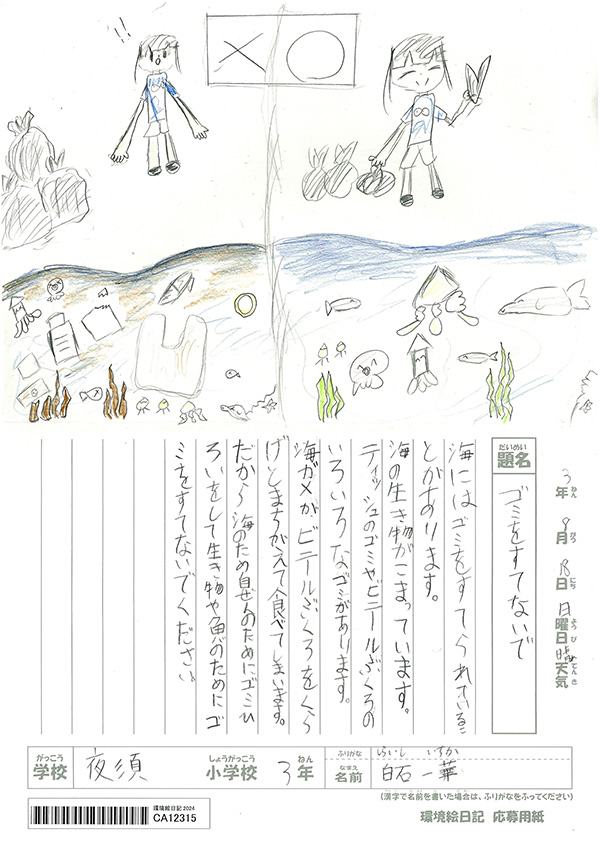 !!
だいめい
題名
ゴミをすてないで
3年 8月
ねん
がつ
にち
日
日曜日
ようび
晴
天気
てんき
海にはゴミをすてられているこ
とがあります。
海の生き物がこまっています。
ティッシュのゴミやビニールぶくろの
いろいろなゴミがあります。
海ガメが、ビニールぶくろをくら
げとまちがえて食べてしまいます。
だから海のため自ぜんのためにゴミひ
ろいをして生き物や魚のためにゴ
ミをすてないでください。
がっこう
学校
夜須
しょうがっこう
小学校
3年
ねん
ふりがな
しらいし いちか
なまえ
名前
白石 一華
(漢字で名前を書いた場合は、ふりがなをふってください)
環境絵日記2024
CA12315
環境絵日記 応募用紙